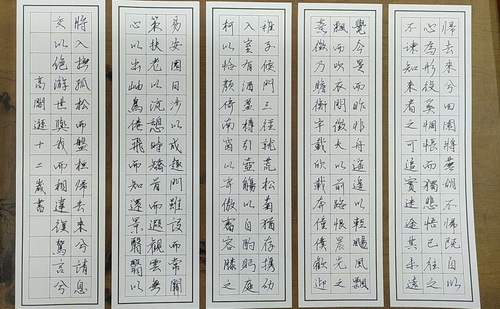 歸去來兮田園將蕪胡不歸既自以
心為形役奚惆悵而獨悲悟已往之
不諫知來者之可追實迷途其未遠
覺今是而昨非舟遙遙以輕颺風飄
飄而吹衣問征夫以前路恨晨光之
熹微乃瞻衡宇載欣載奔僮僕歡迎
稚子候門三徑就荒松菊猶存攜幼
入室有酒盈樽引壺觴以自酌眄庭
柯以怡顏倚南窗以寄傲審容膝之
易安園日涉以成趣門雖設而常關
策扶老以流憩時矯首而遐觀雲無
心以出岫鳥倦飛而知還景翳翳以
將入撫孤松而盤桓歸去來兮請息
交以絕游世與我而相違復駕言兮
十二歲書